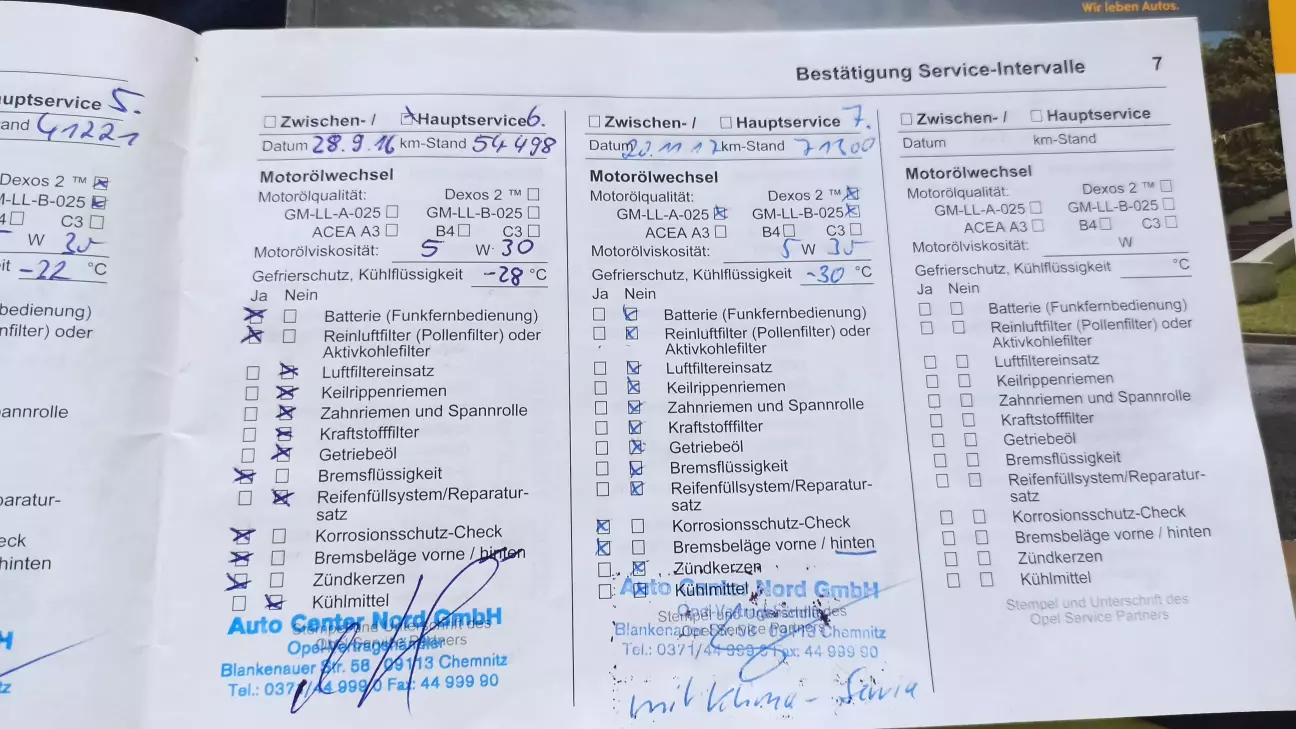 Wir leben Autos.
Bestätigung Service-Intervalle 7
auptservice 5.
and 41221
Dexos 2 ™
M-LL-B-025
4 C3
W 30
it -22 °C
bedienung)
nfilter) oder
annrolle
paratur-
eck
hinten
H
tz
Zwischen- / Hauptservice 6.
Datum 28.9.16 km-Stand 54498
Motorölwechsel
Motorölqualität: Dexos 2 ™
GM-LL-A-025 GM-LL-B-025
ACEA A3 B4 C3
Motorölviskosität: 5 W 30
Gefrierschutz, Kühlflüssigkeit -28 °C
Ja Nein
Batterie (Funkfernbedienung)
Reinluftfilter (Pollenfilter) oder
Aktivkohlefilter
Luftfiltereinsatz
Keilrippenriemen
Zahnriemen und Spannrolle
Kraftstofffilter
Getriebeöl
Bremsflüssigkeit
Reifenfüllsystem/Reparatur-
satz
Korrosionsschutz-Check
Bremsbeläge vorne / hinten
Zündkerzen
Kühlmittel
Auto Center Nord GmbH
Stempel und Unterschrift des
Opel Service Partners
Opel-Vertragshändler
Blankenauer Str. 58 / 09113 Chemnitz
Tel.: 0371/44 999 0 Fax: 44 999 90
Zwischen- / Hauptservice 7.
Datum 20.11.17 km-Stand 71300
Motorölwechsel
Motorölqualität: Dexos 2 ™
GM-LL-A-025 GM-LL-B-025
ACEA A3 B4 C3
Motorölviskosität: 5 W 30
Gefrierschutz, Kühlflüssigkeit -30 °C
Ja Nein
Batterie (Funkfernbedienung)
Reinluftfilter (Pollenfilter) oder
Aktivkohlefilter
Luftfiltereinsatz
Keilrippenriemen
Zahnriemen und Spannrolle
Kraftstofffilter
Getriebeöl
Bremsflüssigkeit
Reifenfüllsystem/Reparatur-
satz
Korrosionsschutz-Check
Bremsbeläge vorne / hinten
Zündkerzen
Kühlmittel
Auto Center Nord GmbH
Stempel und Unterschrift des
Opel Service Partners
Opel-Vertragshändler
Blankenauer Str. 58 09113 Chemnitz
Tel.: 0371/44 999 0 Fax: 44 999 90
mit Klima-Service
Zwischen- / Hauptservice
Datum km-Stand
Motorölwechsel
Motorölqualität: Dexos 2 ™
GM-LL-A-025 GM-LL-B-025
ACEA A3 B4 C3
Motorölviskosität: W
Gefrierschutz, Kühlflüssigkeit °C
Ja Nein
Batterie (Funkfernbedienung)
Reinluftfilter (Pollenfilter) oder
Aktivkohlefilter
Luftfiltereinsatz
Keilrippenriemen
Zahnriemen und Spannrolle
Kraftstofffilter
Getriebeöl
Bremsflüssigkeit
Reifenfüllsystem/Reparatur-
satz
Korrosionsschutz-Check
Bremsbeläge vorne / hinten
Zündkerzen
Kühlmittel
Stempel und Unterschrift des
Opel Service Partners